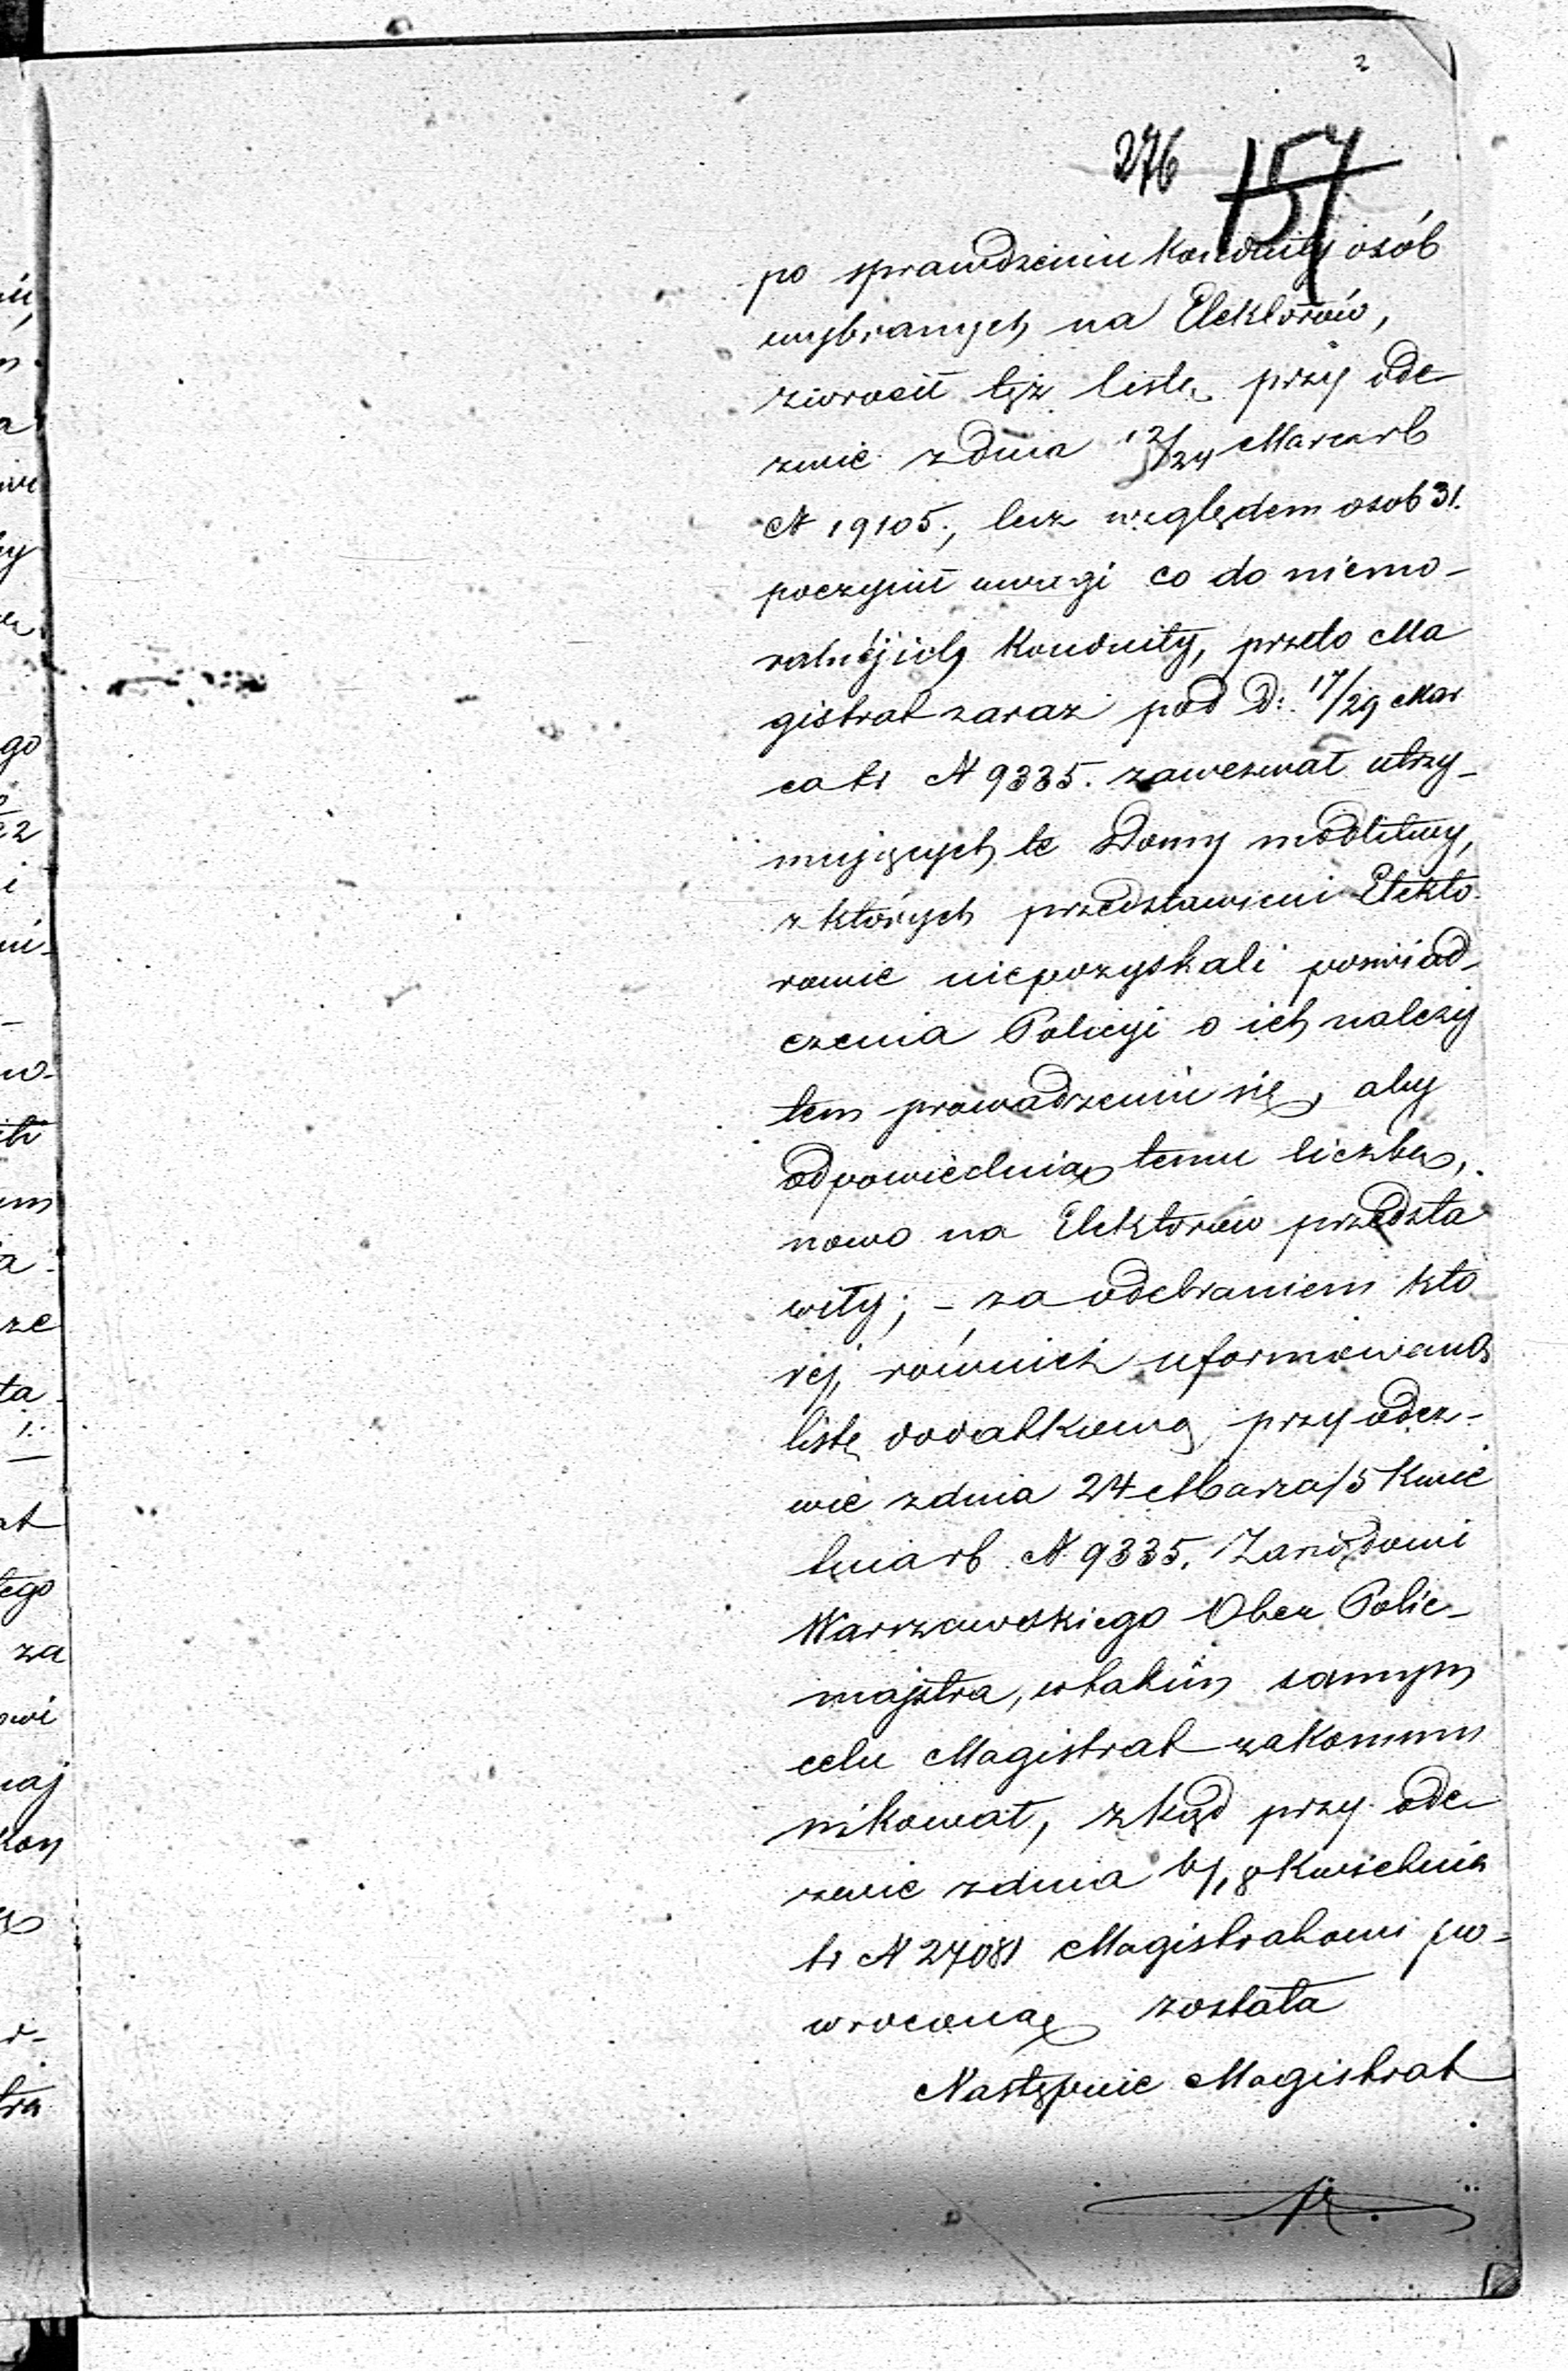 2
276 157
po sprawdzeniu konduity osób
wybranych na Elektorów,
zwrócił tęż listę przy ode-
zwie z dnia 12/24 Marca rb
N 19105., lecz względem osob 31.
poczynił uwagi co do niemo-
ralnéj ich konduity, przeto Ma
gistrat zaraz pod D: 17/29 Mar
ca tr N 9335. zawezwał utrzy-
mujących te Domy modlitwy,
z których przedstawieni Elekto-
rowie niepozyskali poświad-
czenia Policyi o ich należy
tem prowadzeniu się, aby
odpowiednią temu liczbę,
nowo na Elektorów przedsta
wiły; - za odebraniem któ
rej, również uformowaną
listę dodatkową przy odez-
wie z dnia 24 Marca/5 Kwie
tnia rb N 9335. Zarządowi
Warszawskiego Ober Polic-
majstra, w takim samym
celu Magistrat zakommu
nikował, zkąd przy ode
zwie z dnia 6/18 Kwietnia
tr N 27081 Magistratowi po-
wroconą została
Następnie Magistrat